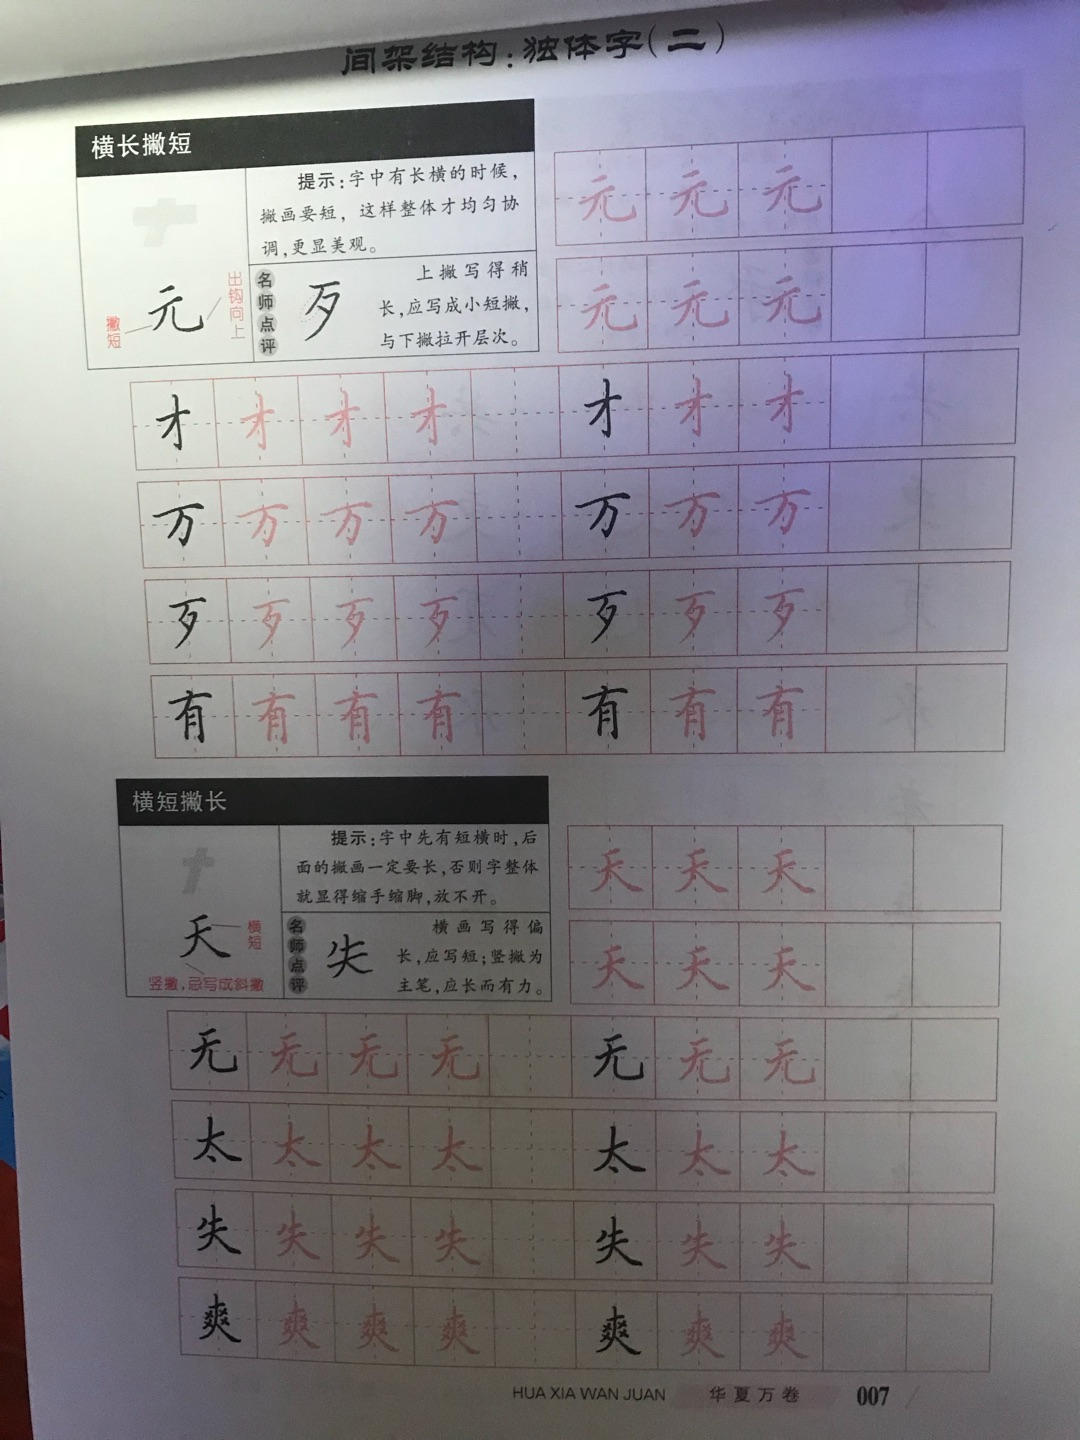 间架结构:独体字(二)
横长撇短
提示:字中有长横的时候,
撇画要短,这样整体才均匀协
调,更显美观。
元
撇短
出钩向上
名师点评
歹
上撇写得稍
长,应写成小短撇,
与下撇拉开层次。
元 元 元
元 元 元
才 才 才 才 才 才 才
万 万 万 万 万 万 万
歹 歹 歹 歹 歹 歹 歹
有 有 有 有 有 有 有
横短撇长
提示:字中先有短横时,后
面的撇画一定要长,否则字整体
就显得缩手缩脚,放不开。
天
横短
竖撇,忌写成斜撇
名师点评
失
横画写得偏
长,应写短;竖撇为
主笔,应长而有力。
天 天 天
天 天 天
无 无 无 无 无 无 无
太 太 太 太 太 太 太
失 失 失 失 失 失 失
爽 爽 爽 爽 爽 爽 爽
HUA XIA WAN JUAN 华夏万卷 007